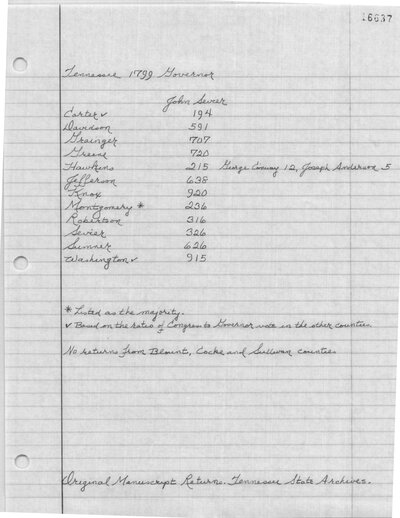 16637
Tennessee 1799 Governor
John Sevier
Carter ✓ 194
Davidson 591
Grainger 707
Greene 720
Hawkins 215 George Conway 12, Joseph Anderson 5
Jefferson 638
Knox 920
Montgomery * 236
Robertson 316
Sevier 326
Sumner 626
Washington ✓ 915
* Listed as the majority.
✓ Based on the ratio of Congress to Governor vote in the other counties.
No returns from Blount, Cocke and Sullivan counties
Original Manuscript Returns. Tennessee State Archives.